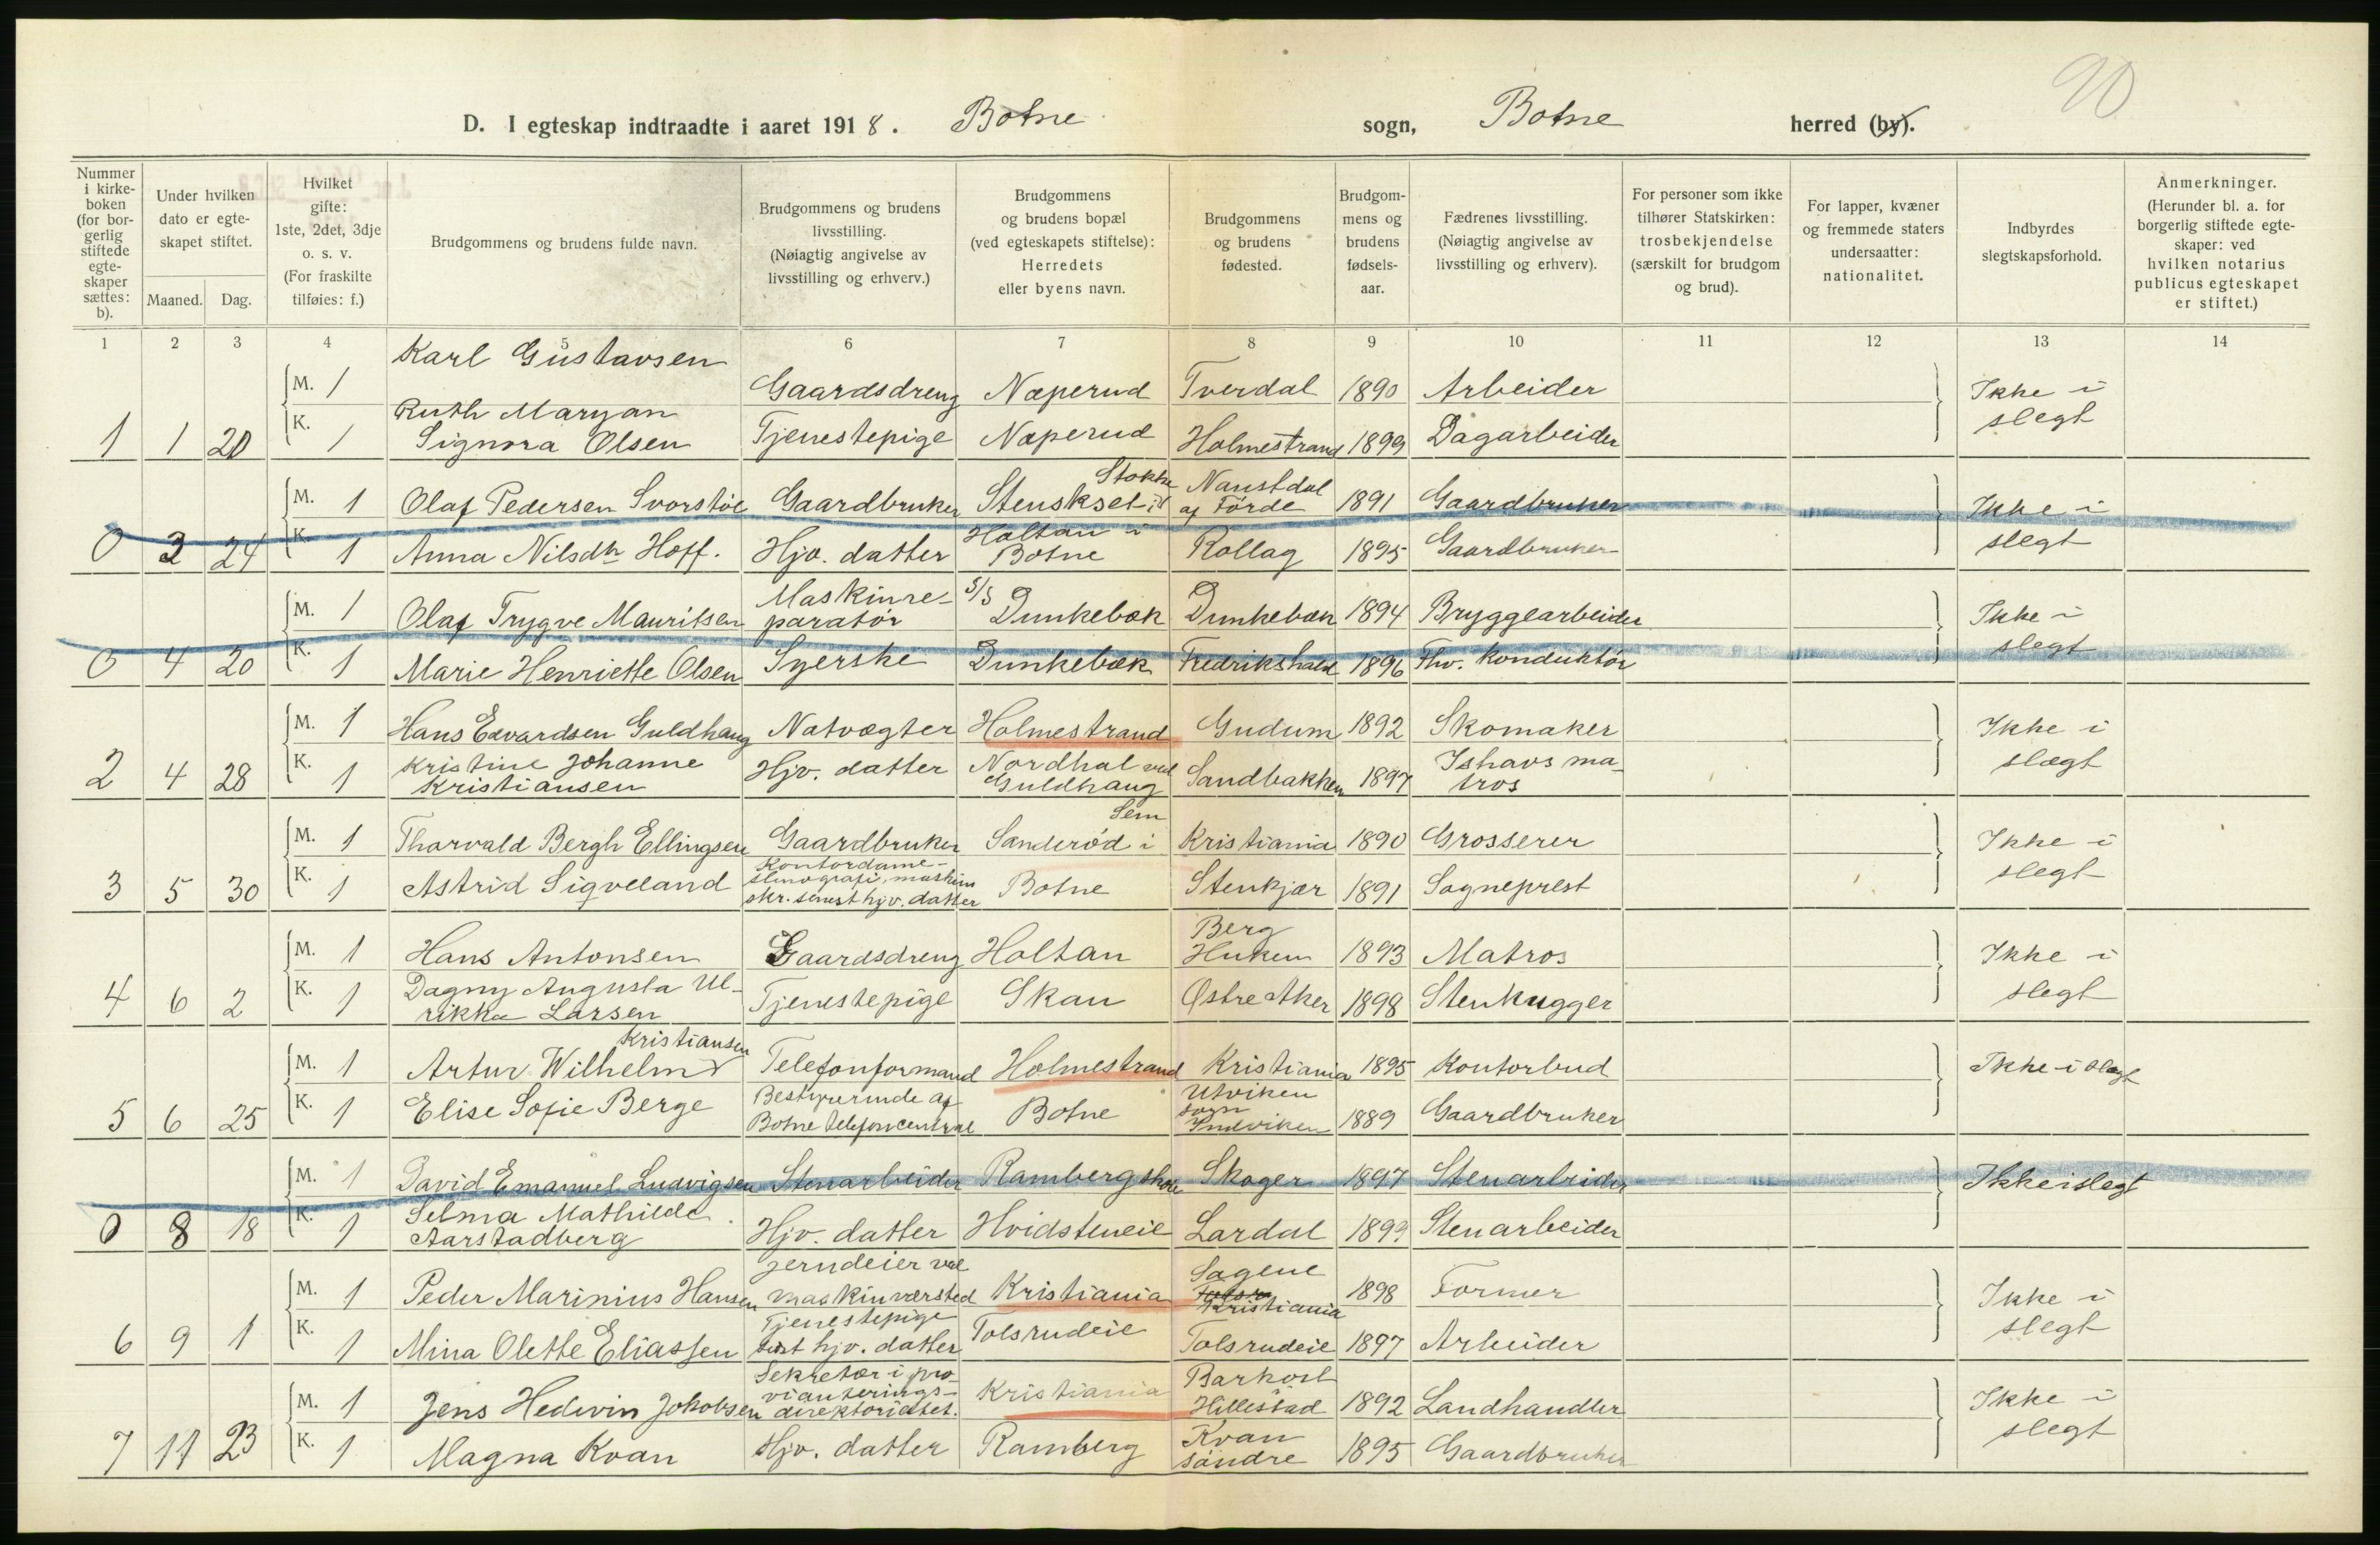 20
D. I egteskap indtraadte i aaret 1918. Botne sogn, Botne herred (by).
Nummer i kirkeboken (for borgerlig stiftede egteskaper sættes: b).
Under hvilken dato er egteskapet stiftet.
Maaned. Dag.
Hvilket gifte: 1ste, 2det, 3dje o. s. v. (For fraskilte tilføies: f.)
Brudgommens og brudens fulde navn.
Brudgommens og brudens livsstilling. (Nøiagtig angivelse av livsstilling og erhverv.)
Brudgommens og brudens bopæl (ved egteskapets stiftelse): Herredets eller byens navn.
Brudgommens og brudens fødested.
Brudgommens og brudens fødselsaar.
Fædrenes livsstilling. (Nøiagtig angivelse av livsstilling og erhverv).
For personer som ikke tilhører Statskirken: trosbekjendelse (særskilt for brudgom og brud).
For lapper, kvæner og fremmede staters undersaatter: nationalitet.
Indbyrdes slegtskapsforhold.
Anmerkninger. (Herunder bl. a. for borgerlig stiftede egteskaper: ved hvilken notarius publicus egteskapet er stiftet.)
1 2 3 4 5 6 7 8 9 10 11 12 13 14
M. 1 Karl Gustavsen Gaardsdreng Næperud Tverdal 1890 Arbeider Ikke i slegt
1 1 20 K. 1 Ruth Maryan Signora Olsen Tjenestepige Næperud Holmestrand 1899 Dagarbeider
M. 1 Olaf Pedersen Svorstøl Gaardbruker Stokke Naustdal af Førde 1891 Gaardbruker Ikke i slegt
0 3 24 K. 1 Anna Nilsdtr Hoff. Hjv. datter Holtan i Botne Rollag 1895 Gaardbruker
M. 1 Olaf Trygve Mauritsen Maskinreparatør S/S Dunkebæk Dunkebæk 1894 Bryggearbeider Ikke i slegt
0 4 20 K. 1 Marie Henriette Olsen Syerske Dunkebæk Fredrikshald 1896 Fhv. Konduktør
M. 1 Hans Edvardsen Guldhaug Natvægter Holmestrand Gudum 1892 Skomaker Ikke i slægt
2 4 28 K. 1 Kristine Johanne Kristiansen Hjv. datter Nordhal ved Guldhaug Sandbakken 1897 Ishavs matros
M. 1 Thorvald Bergh Ellingsen Gaardbruker Sanderød i Sem Kristiania 1890 Grosserer Ikke i slegt
3 5 30 K. 1 Astrid Sigveland Kontordame- stenografi, maskin skr. senest hjv. datter Botne Stenkjær 1891 Sogneprest
M. 1 Hans Antonsen Gaardsdreng Holtan Berg Huken 1893 Matros Ikke i slegt
4 6 2 K. 1 Dagny Augusta Ulrikke Larsen Tjenestepige Skau Østre Aker 1898 Stenhugger
M. 1 Artur Wilhelm Kristiansen Telefonformand Holmestrand Kristiania 1895 Kontorbud Ikke i slegt
5 6 25 K. 1 Elise Sofie Berge Bestyrerinde af Botne telefoncentral Botne Utviken sogn Indviken 1889 Gaardbruker
M. 1 David Emanuel Ludvigsen Stenarbeider Ramberg skole Skoger 1897 Stenarbeider Ikke i slegt
0 8 18 K. 1 Selma Mathilde Aarstadberg Hjv. datter Hvidsteneie Lardal 1899 Stenarbeider
M. 1 Peder Marinius Hansen jerndeier ved maskinværsted Kristiania Sagene Kristiania 1898 Former Ikke i slegt
6 9 1 K. 1 Mina Olette Eliassen Tjenestepige sist hjv. datter Tolsrudeie Tolsrudeie 1897 Arbeider
M. 1 Jens Hedevin Jakobsen Sekretær i provianteringsdirektoriatet. Kristiania Barkost Hillestad 1892 Landhandler Ikke i slegt
7 11 23 K. 1 Magna Kvan Hjv. datter Ramberg Kvan søndre 1895 Gaardbruker